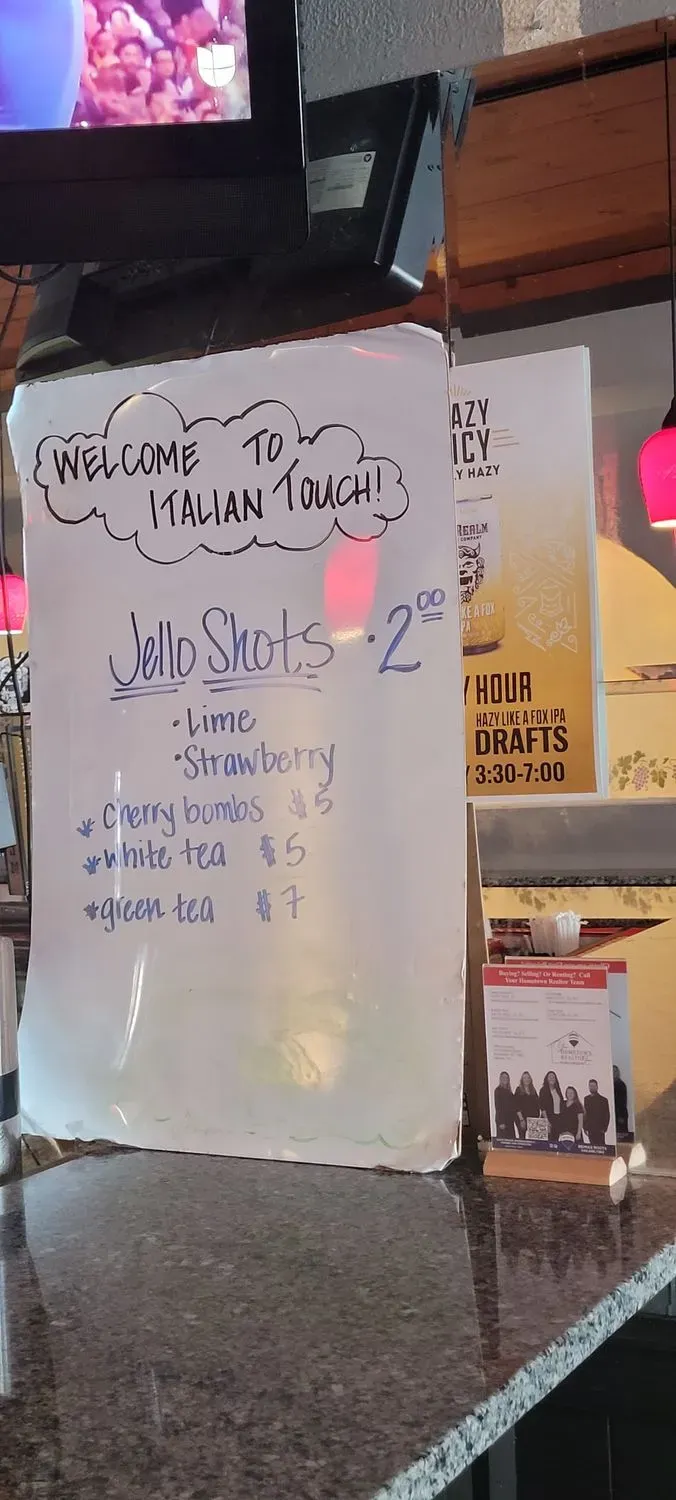 WELCOME TO
ITALIAN TOUCH!
Jello Shots · 2.00
· Lime
· Strawberry
* cherry bombs $5
* white tea $5
* green tea $7
AZY
ICY
Y HAZY
REALM
COMPANY
KE A FOX
PA
Y HOUR
HAZY LIKE A FOX IPA
DRAFTS
Y 3:30-7:00
Buying? Selling? Or Renting? Call
Your Hometown Realtor Team